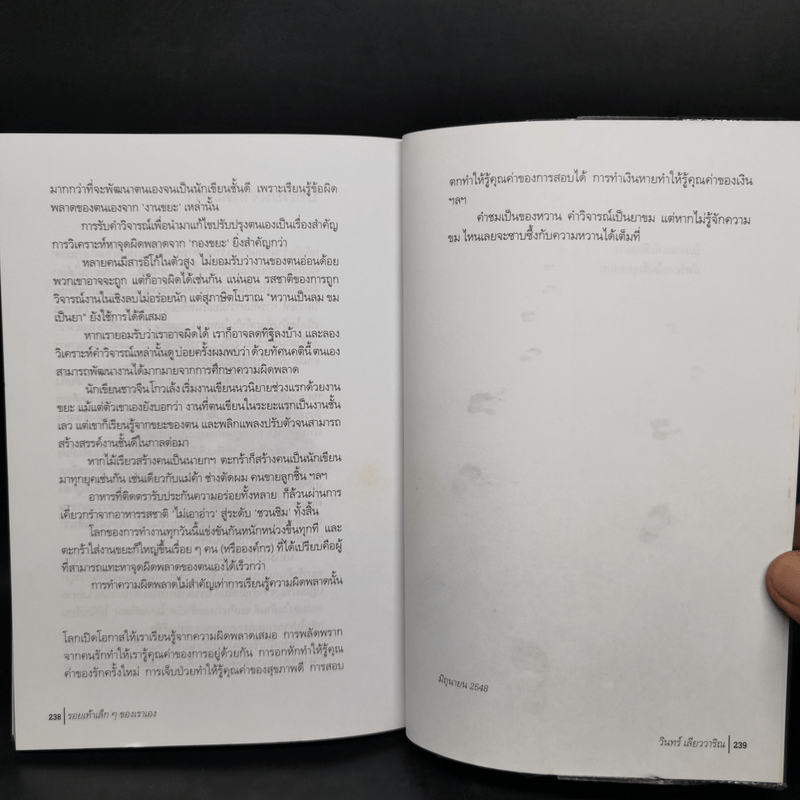 มากกว่าที่จะพัฒนาตนเองจนเป็นนักเขียนชั้นดี เพราะเรียนรู้ข้อผิด
พลาดของตนเองจาก 'งานขยะ' เหล่านั้น
การรับคำวิจารณ์เพื่อนำมาแก้ไขปรับปรุงตนเองเป็นเรื่องสำคัญ
การวิเคราะห์หาจุดผิดพลาดจาก 'กองขยะ' ยิ่งสำคัญกว่า
หลายคนมีสารอีโก้ในตัวสูง ไม่ยอมรับว่างานของตนอ่อนด้อย
พวกเขาอาจจะถูก แต่ก็อาจผิดได้เช่นกัน แน่นอน รสชาติของการถูก
วิจารณ์งานในเชิงลบไม่อร่อยนัก แต่สุภาษิตโบราณ "หวานเป็นลม ขม
เป็นยา" ยังใช้การได้ดีเสมอ
หากเรายอมรับว่าเราอาจผิดได้ เราก็อาจลดทิฐิลงบ้าง และลอง
วิเคราะห์คำวิจารณ์เหล่านั้นดู บ่อยครั้งผมพบว่า ด้วยทัศนคตินี้ ตนเอง
สามารถพัฒนางานได้มากมายจากการศึกษาความผิดพลาด
นักเขียนชาวจีน โกวเล้ง เริ่มงานเขียนนวนิยายช่วงแรกด้วยงาน
ขยะ แม้แต่ตัวเขาเองยังบอกว่า งานที่ตนเขียนในระยะแรกเป็นงานชั้น
เลว แต่เขาก็เรียนรู้จากขยะของตน และพลิกแพลงปรับตัวจนสามารถ
สร้างสรรค์งานชั้นดีในกาลต่อมา
หากไม้เรียวสร้างคนเป็นนายกฯ ตะกร้าก็สร้างคนเป็นนักเขียน
มาทุกยุคเช่นกัน เช่นเดียวกับแม่ค้า ช่างตัดผม คนขายลูกชิ้น ฯลฯ
อาหารที่ติดตรารับประกันความอร่อยทั้งหลาย ก็ล้วนผ่านการ
เคี่ยวกรำจากอาหารรสชาติ 'ไม่เอาอ่าว' สู่ระดับ 'ชวนชิม' ทั้งสิ้น
โลกของการทำงานทุกวันนี้แข่งขันกันหนักหน่วงขึ้นทุกที และ
ตะกร้าใส่งานขยะก็ใหญ่ขึ้นเรื่อย ๆ คน (หรือองค์กร) ที่ได้เปรียบคือผู้
ที่สามารถแทะหาจุดผิดพลาดของตนเองได้เร็วกว่า
การทำความผิดพลาดไม่สำคัญเท่าการเรียนรู้ความผิดพลาดนั้น
โลกเปิดโอกาสให้เราเรียนรู้จากความผิดพลาดเสมอ การพลัดพราก
จากคนรักทำให้เรารู้คุณค่าของการอยู่ด้วยกัน การอกหักทำให้รู้คุณ
ค่าของรักครั้งใหม่ การเจ็บป่วยทำให้รู้คุณค่าของสุขภาพดี การสอบ
238 รอยเท้าเล็ก ๆ ของเราเอง
ตกทำให้รู้คุณค่าของการสอบได้ การทำเงินหายทำให้รู้คุณค่าของเงิน
ฯลฯ
คำชมเป็นของหวาน คำวิจารณ์เป็นยาขม แต่หากไม่รู้จักความ
ขม ไหนเลยจะซาบซึ้งกับความหวานได้เต็มที่
มิถุนายน 2548
วินทร์ เลียววาริณ 239